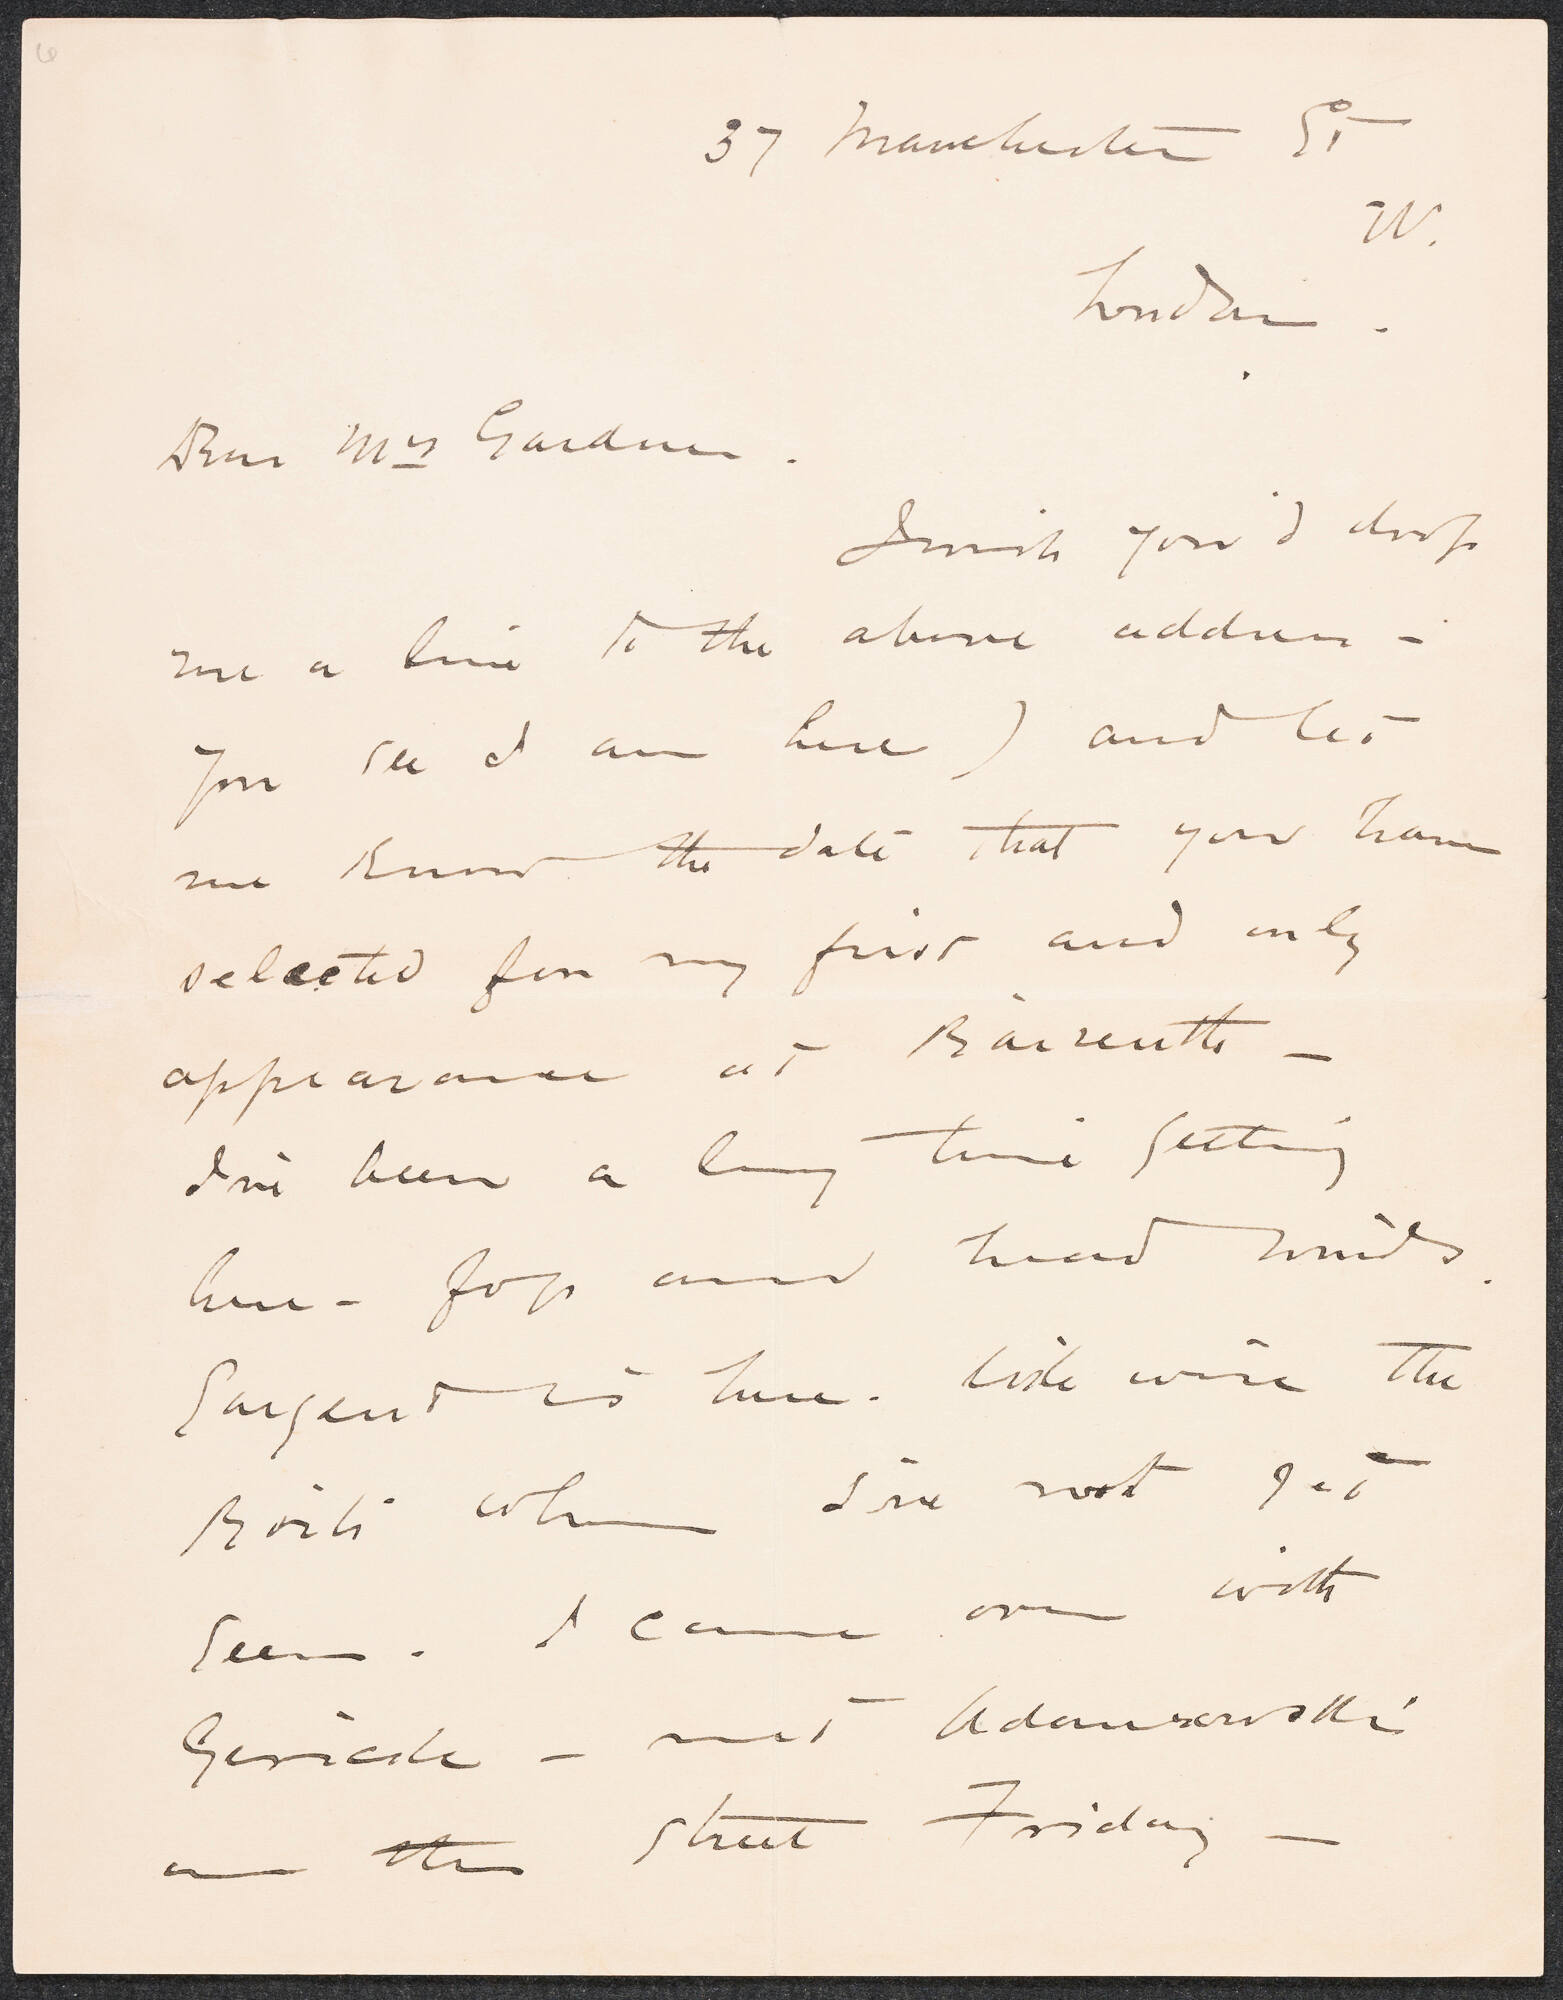 6
37 Manchester St
W.
London.
Dear Mrs Gardner.
I wish you'd drop
me a line to the above address -
you see I am here) and let
me know the date that you have
selected for my first and only
appearance at Baireuth -
I've been a long time getting
here - fog and head winds.
Sargent is here. Likewise the
Boits whom I've not yet
seen. I came over with
Gericke - met Adamowski
on the street Friday -